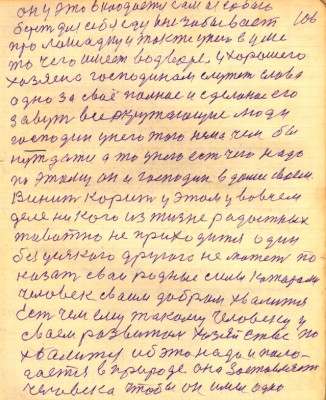 он у это вкаодается сам и собак
бережт себя еду он не забывает 106
про лошадку у также у него в уме
то чего имеет водворе у хорошего
хозяена господинам служит слава
одно за своё полное и сделаное его
завут все окружающие люди
господин у него того нема чем бы
нуждати а то у него ест чего надо
по этому он и господин в доме своем
Винит корит у этом у вовсем
деле никого из жизне радостных
живатно не приходится один
без усякого другого не может по-
казат сваи родные силы катарами
человек сваим добрам хвалится
ест чем ему такому человеку у
сваем развитых хозяйстве по
хвалится и об это надо и пола-
гается в природе она заставляет
человека чтобы он имел одно